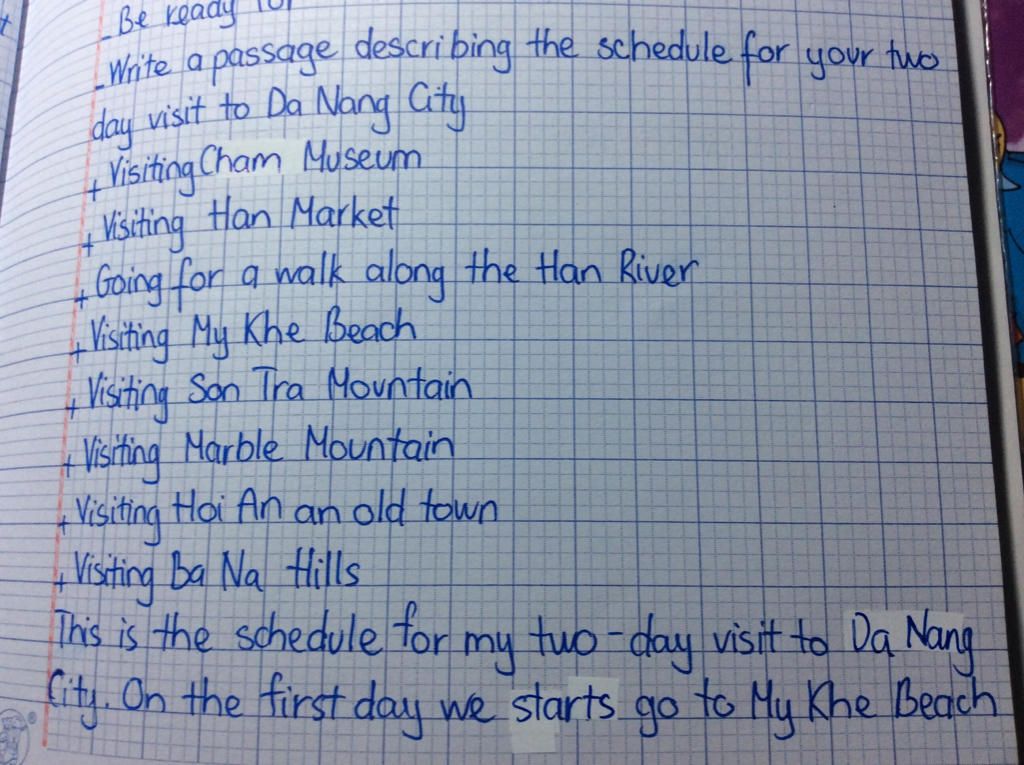 - Be ready for
- Write a passage describing the schedule for your two
day visit to Da Nang City
+ Visiting Cham Museum
+ Visiting Han Market
+ Going for a walk along the Han River
+ Visiting My Khe Beach
+ Visiting Son Tra Mountain
+ Visiting Marble Mountain
+ Visiting Hoi An an old town
+ Visiting Ba Na Hills
This is the schedule for my two-day visit to Da Nang
City. On the first day we starts go to My Khe Beach